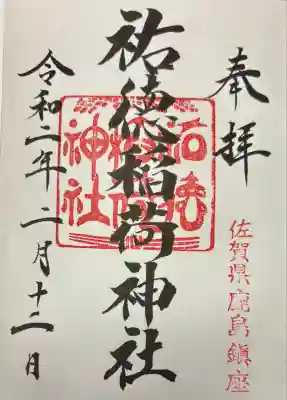 奉拝
佐賀県鹿島鎮座
祐徳稲荷神社
祐徳稲荷神社
令和二年二月十二日